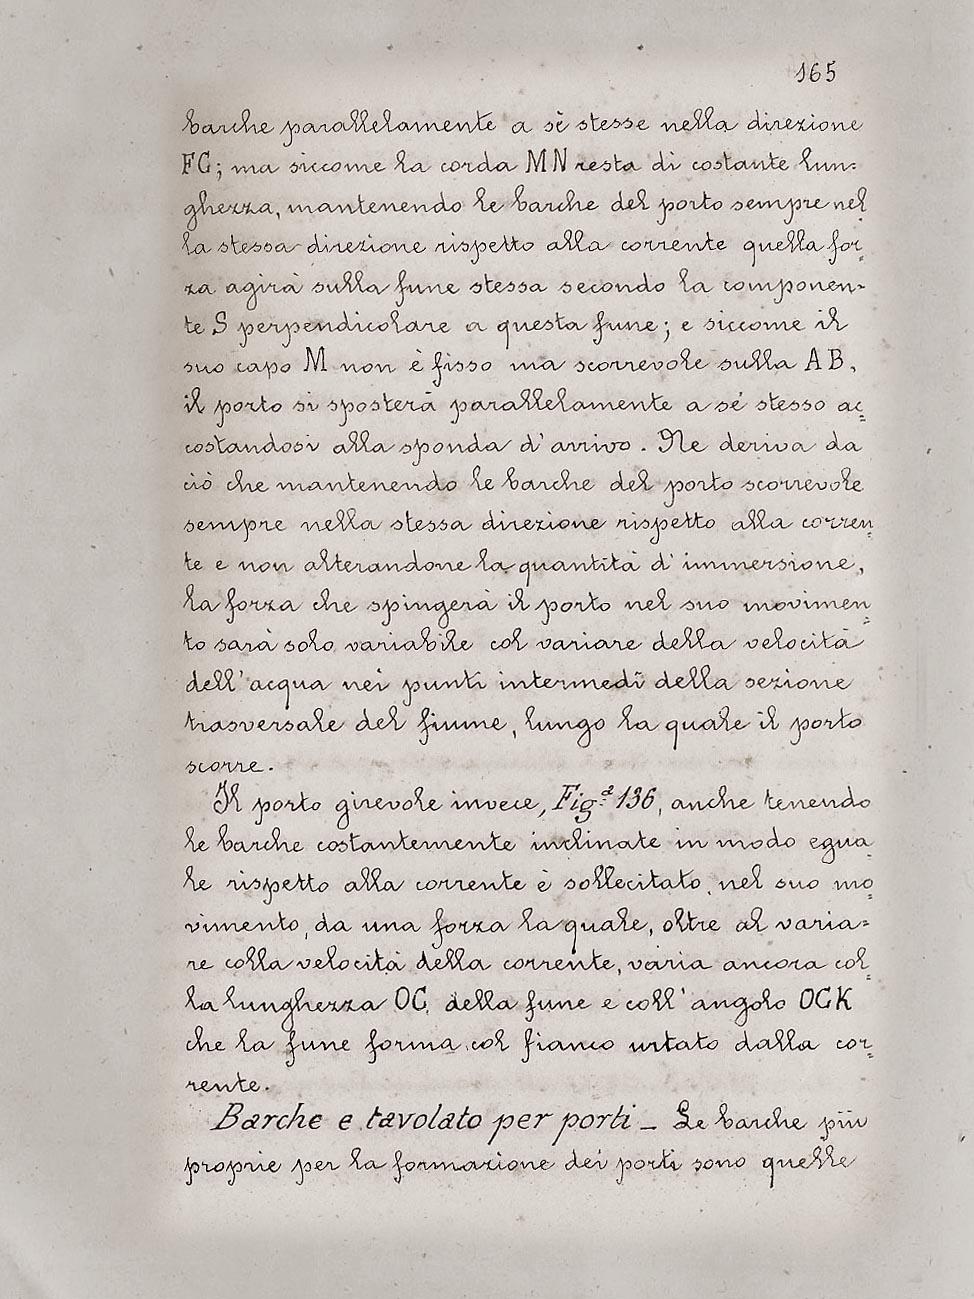 165
barche parallelamente a sè stesse nella direzione
FG; ma siccome la corda MN resta di costante lun-
ghezza, mantenendo le barche del porto sempre nel
la stessa direzione rispetto alla corrente quella for=
za agirà sulla fune stessa secondo la componen-
te S perpendicolare a questa fune; e siccome il
suo capo M non è fisso ma scorrevole sulla AB,
il porto si sposterà parallelamente a sé stesso ac=
costandosi alla sponda d'arrivo. Ne deriva da
ciò che mantenendo le barche del porto scorrevole
sempre nella stessa direzione rispetto alla corren=
te e non alterandone la quantità d'immersione,
la forza che spingerà il porto nel suo movimen=
to sarà solo variabile col variare della velocità
dell'acqua nei punti intermedî della sezione
trasversale del fiume, lungo la quale il porto
scorre.
Il porto girevole invece, Fig.ª 136, anche tenendo
le barche costantemente inclinate in modo egua=
le rispetto alla corrente è sollecitato, nel suo mo=
vimento, da una forza la quale, oltre al varia=
re colla velocità della corrente, varia ancora col=
la lunghezza OG della fune e coll'angolo OGK
che la fune forma col fianco urtato dalla cor=
rente.
Barche e tavolato per porti _ Le barche più
proprie per la formazione dei porti sono quelle